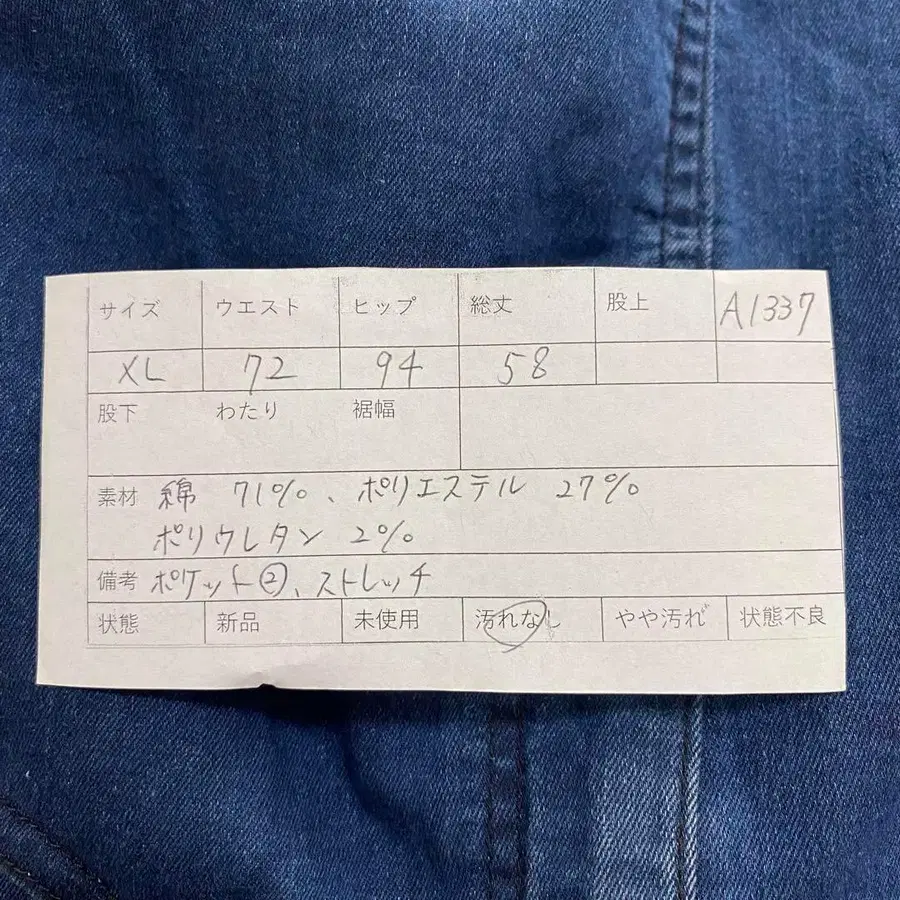 サイズ ウエスト ヒップ 総丈 股上 A1337
XL 72 94 58
股下 わたり 裾幅
素材 綿 71%、ポリエステル 27%
ポリウレタン 2%
備考 ポケット②、ストレッチ
状態 新品 未使用 汚れなし やや汚れ 状態不良